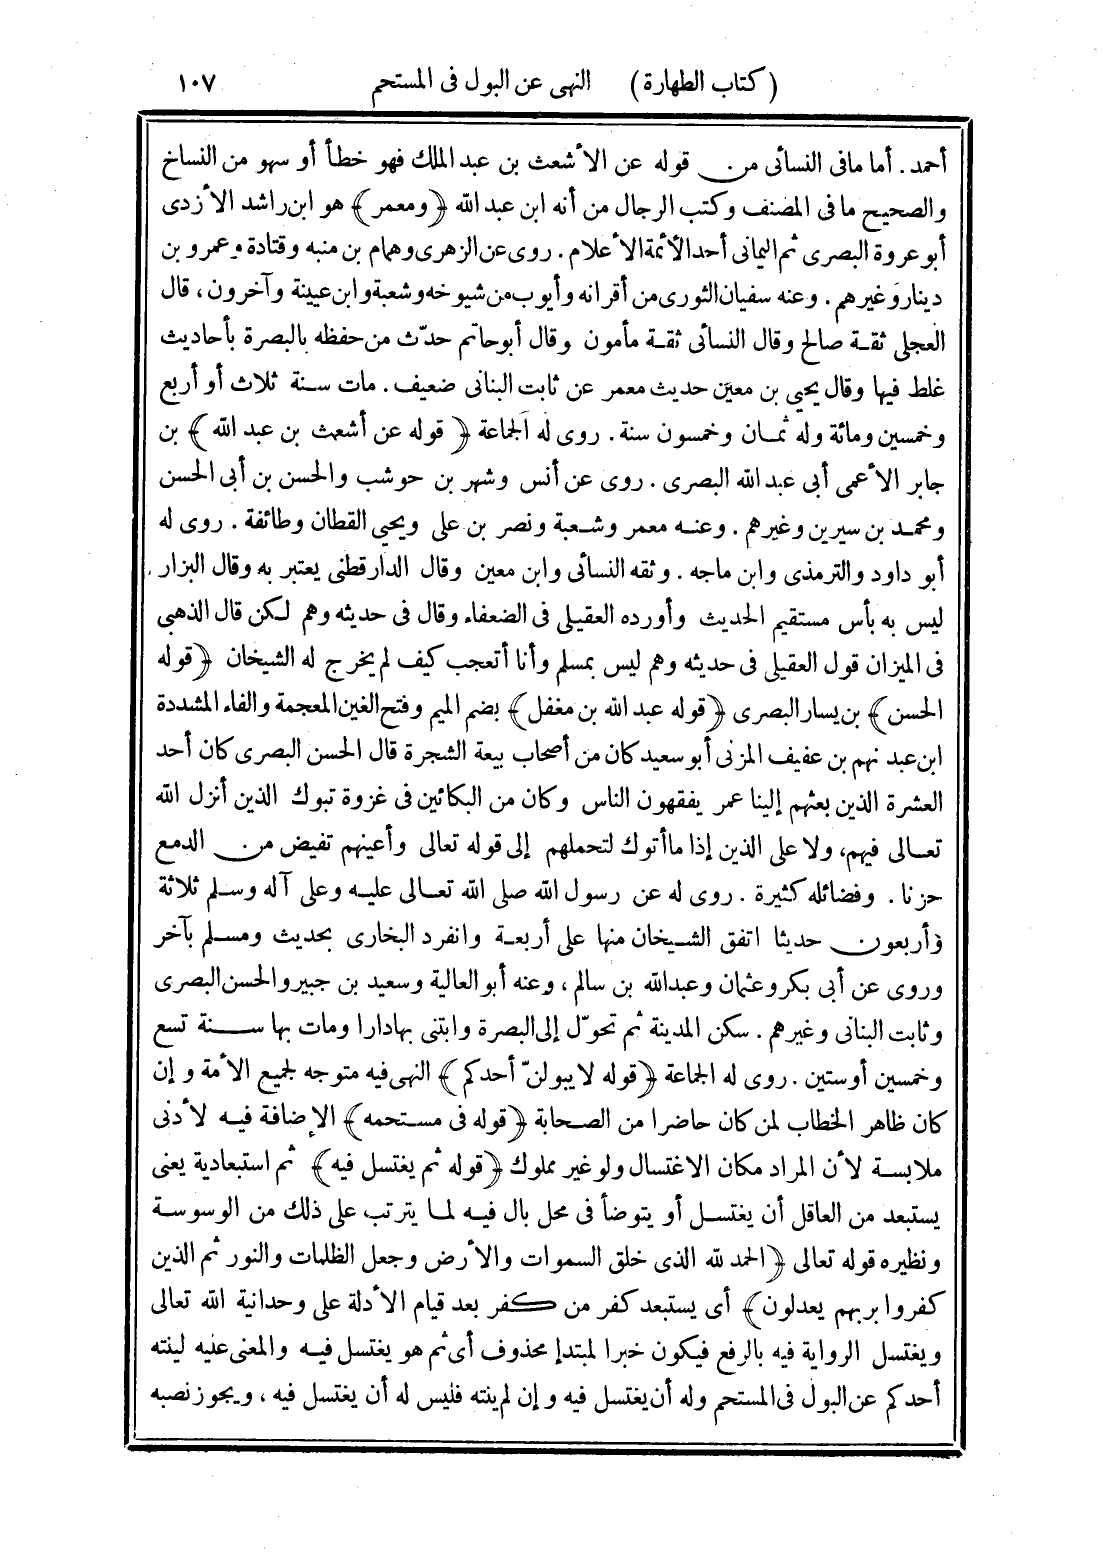 ( كتاب الطهارة )   النهى عن البول فى المستحم   ١٠٧
أحمد . أما مافى النسائى من قوله عن الأشعث بن عبد الملك فهو خطأ أو سهو من النساخ
والصحيح مافى المصنف وكتب الرجال من أنه ابن عبد الله ﴿ومعمر﴾ هو ابن راشد الأزدى
أبو عروة البصرى ثم اليمانى أحد الأئمة الأعلام . روى عن الزهرى وهمام بن منبه وقتادة وعمرو بن
دينار وغيرهم . وعنه سفيان الثورى من أقرانه وأيوب من شيوخه وشعبة وابن عيينة وآخرون ، قال
العجلى ثقة صالح وقال النسائى ثقة مأمون وقال أبو حاتم حدّث من حفظه بالبصرة بأحاديث
غلط فيها وقال يحيى بن معين حديث معمر عن ثابت البنانى ضعيف . مات سنة ثلاث أو أربع
وخمسين ومائة وله ثمان وخمسون سنة . روى له الجماعة ﴿قوله عن أشعث بن عبد الله﴾ بن
جابر الأعمى أبى عبد الله البصرى . روى عن أنس وشهر بن حوشب والحسن بن أبى الحسن
ومحمد بن سيرين وغيرهم . وعنه معمر وشعبة ونصر بن على ويحيى القطان وطائفة . روى له
أبو داود والترمذى وابن ماجه . وثقه النسائى وابن معين وقال الدارقطنى يعتبر به وقال البزار
ليس به بأس مستقيم الحديث وأورده العقيلى فى الضعفاء وقال فى حديثه وهم لكن قال الذهبى
فى الميزان قول العقيلى فى حديثه وهم ليس بمسلم وأنا أتعجب كيف لم يخرج له الشيخان ﴿قوله
الحسن﴾ بن يسار البصرى ﴿قوله عبد الله بن مغفل﴾ بضم الميم وفتح الغين المعجمة والفاء المشددة
ابن عبد نهم بن عفيف المزنى أبو سعيد كان من أصحاب بيعة الشجرة قال الحسن البصرى كان أحد
العشرة الذين بعثهم إلينا عمر يفقهون الناس وكان من البكائين فى غزوة تبوك الذين أنزل الله
تعالى فيهم، ولا على الذين إذا ما أتوك لتحملهم إلى قوله تعالى وأعينهم تفيض من الدمع
حزنا . وفضائله كثيرة . روى له عن رسول الله صلى الله تعالى عليه وعلى آله وسلم ثلاثة
وأربعون حديثا اتفق الشيخان منها على أربعة وانفرد البخارى بحديث ومسلم بآخر
وروى عن أبى بكر وعثمان وعبدالله بن سالم ، وعنه أبو العالية وسعيد بن جبير والحسن البصرى
وثابت البنانى وغيرهم . سكن المدينة ثم تحوّل إلى البصرة وابتنى بها دارا ومات بها سنة تسع
وخمسين أوستين . روى له الجماعة ﴿قوله لا يبولنّ أحدكم﴾ النهى فيه متوجه لجميع الأمة وإن
كان ظاهر الخطاب لمن كان حاضرا من الصحابة ﴿قوله فى مستحمه﴾ الإضافة فيه لأدنى
ملابسة لأن المراد مكان الاغتسال ولو غير مملوك ﴿قوله ثم يغتسل فيه﴾ ثم استبعادية يعنى
يستبعد من العاقل أن يغتسل أو يتوضأ فى محل بال فيه لما يترتب على ذلك من الوسوسة
ونظيره قوله تعالى ﴿الحمد لله الذى خلق السموات والأرض وجعل الظلمات والنور ثم الذين
كفروا بربهم يعدلون﴾ أى يستبعد كفر من كفر بعد قيام الأدلة على وحدانية الله تعالى
ويغتسل الرواية فيه بالرفع فيكون خبرا لمبتدإ محذوف أى ثم هو يغتسل فيه والمعنى عليه لينته
أحدكم عن البول فى المستحم وله أن يغتسل فيه وإن لم ينته فليس له أن يغتسل فيه ، ويجوز نصبه